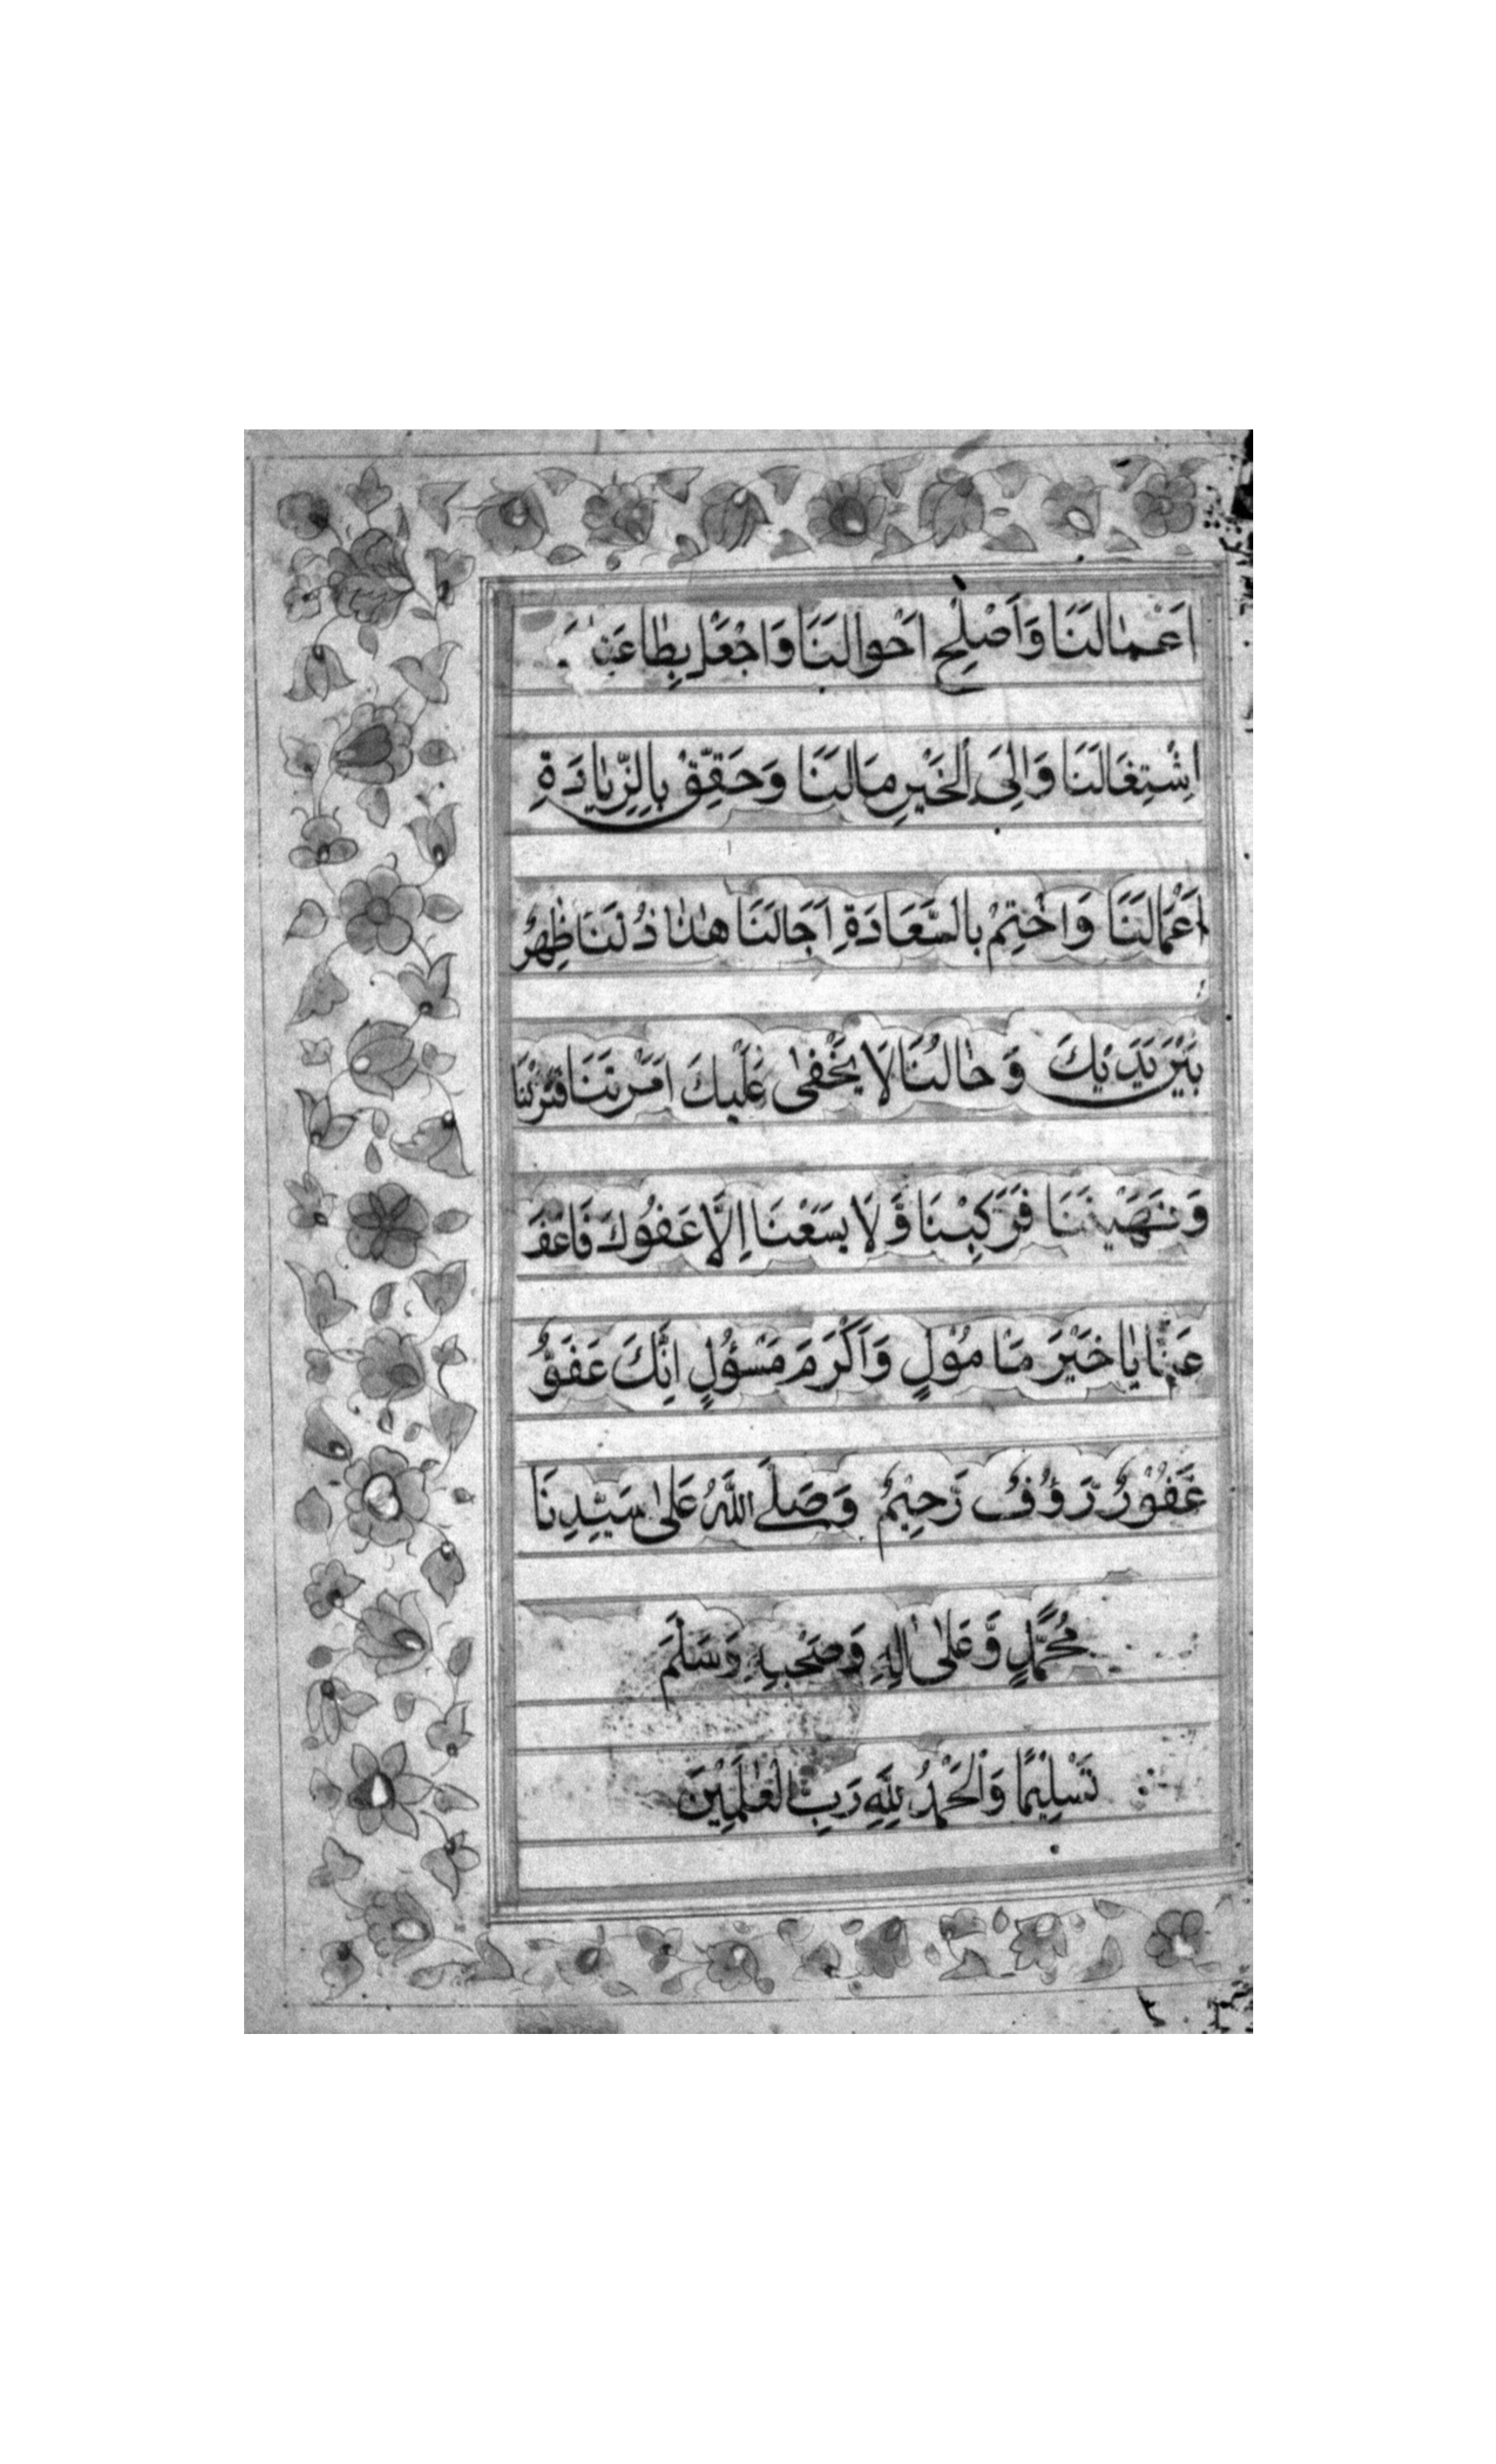 اَعْمٰالَنَا وَاَصْلِحْ اَحْوٰالَنَا وَاجْعَلْ بِطٰاعَتِ
اِشْتِغَالَنَا وَاِلَى الْخَيْرِ مَاٰلَنَا وَحَقِّقْ بِالزِّيٰادَةِ
اَعْمَالَنَا وَاخْتِمْ بِالسَّعَادَةِ اٰجَالَنَا هٰذٰا ذُلُّنَا ظٰهِرٌ
بَيْنَ يَدَيْكَ وَحٰالُنَا لَا يَخْفٰى عَلَيْكَ اَمَرْتَنَا فَتَرَكْنَا
وَنَهَيْتَنَا فَرَكِبْنَا وَلَا يَسَعُنَا اِلَّا عَفْوُكَ فَاعْفُ
عَنَّا يٰا خَيْرَ مَاْمُوْلٍ وَاَكْرَمَ مَسْؤُلٍ اِنَّكَ عَفُوٌّ
غَفُوْرٌ رَّؤُفٌ رَّحِيْمٌ وَصَلَّى اللّٰهُ عَلٰى سَيِّدِنَا
مُحَمَّدٍ وَّعَلٰى اٰلِهٖ وَصَحْبِهٖ وَسَلَّمَ
تَسْلِيْمًا وَالْحَمْدُ لِلّٰهِ رَبِّ الْعٰلَمِيْنَ